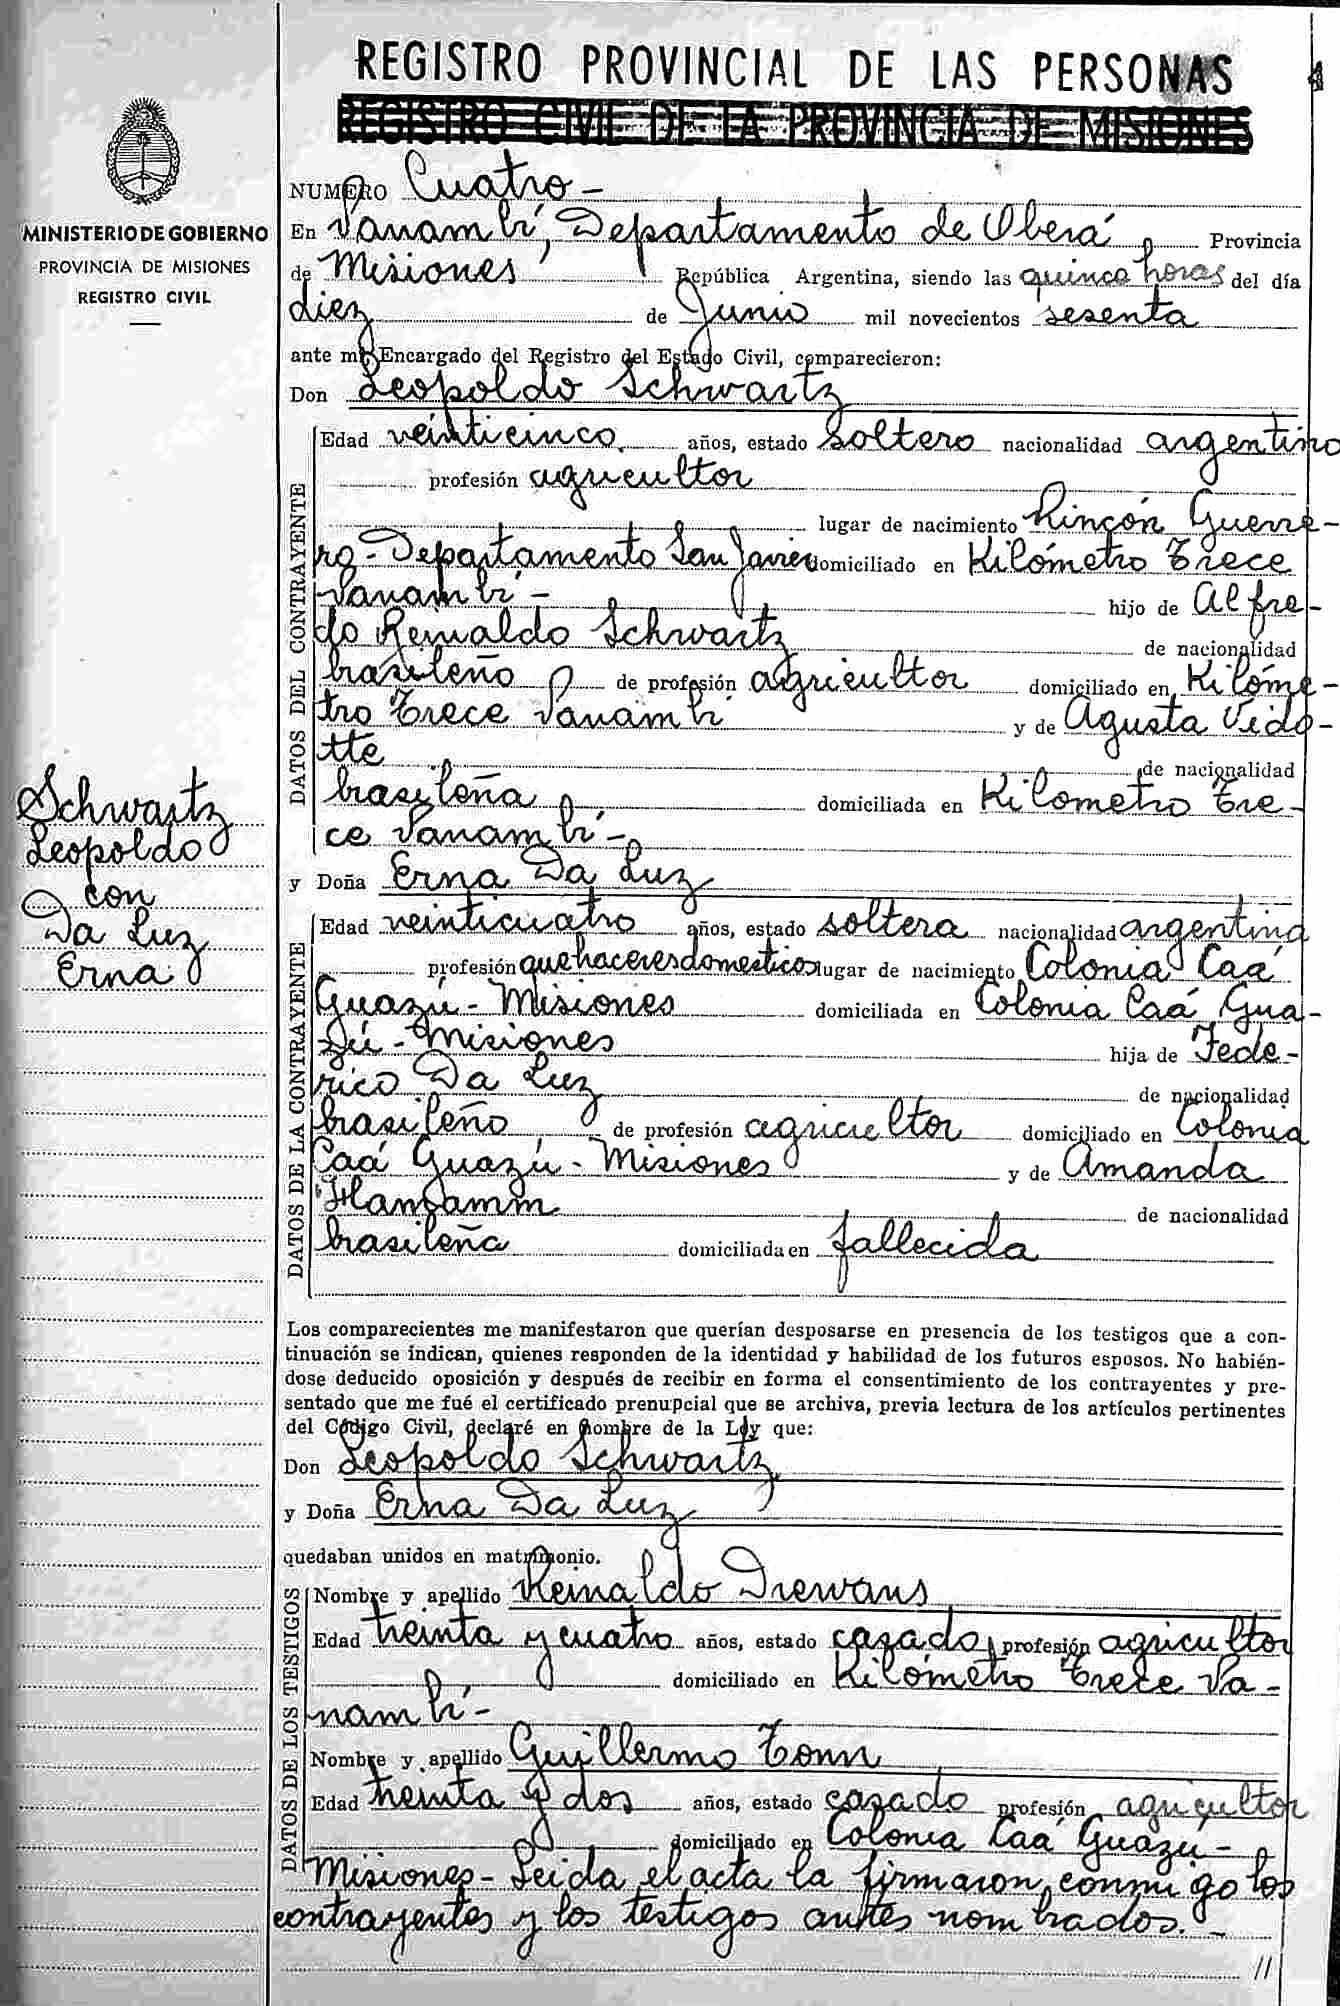 REGISTRO PROVINCIAL DE LAS PERSONAS
REGISTRO CIVIL DE LA PROVINCIA DE MISIONES
MINISTERIO DE GOBIERNO
PROVINCIA DE MISIONES
REGISTRO CIVIL
NUMERO Cuatro-
En Panambí, Departamento de Oberá, Provincia
de Misiones República Argentina, siendo las quince horas del día
diez de Junio mil novecientos sesenta
ante mí, Encargado del Registro del Estado Civil, comparecieron:
Don Leopoldo Schwartz
DATOS DEL CONTRAYENTE
Edad veinticinco años, estado soltero nacionalidad argentino
profesión agricultor
lugar de nacimiento Rincón Guerre-
ro-Departamento San Javier domiciliado en Kilómetro Trece
Panambí- hijo de Alfre-
do Reinaldo Schwartz de nacionalidad
brasileño de profesión agricultor domiciliado en Kilóme-
tro Trece Panambí y de Agusta Vido-
tte de nacionalidad
brasileña domiciliada en Kilometro Tre-
ce Panambí-
Schwartz
Leopoldo
con
Da Luz
Erna
y Doña Erna Da Luz
DATOS DE LA CONTRAYENTE
Edad veinticuatro años, estado soltera nacionalidad argentina
profesión quehaceres domesticos lugar de nacimiento Colonia Caá
Guazú-Misiones domiciliada en Colonia Caá Gua-
zú-Misiones hija de Fede-
rico Da Luz de nacionalidad
brasileño de profesión agricultor domiciliado en Colonia
Caá Guazú-Misiones y de Amanda
de nacionalidad
brasileña domiciliada en fallecida
Los comparecientes me manifestaron que querían desposarse en presencia de los testigos que a con-
tinuación se indican, quienes responden de la identidad y habilidad de los futuros esposos. No habién-
dose deducido oposición y después de recibir en forma el consentimiento de los contrayentes y pre-
sentado que me fué el certificado prenupcial que se archiva, previa lectura de los artículos pertinentes
del Código Civil, declaré en nombre de la Ley que:
Don Leopoldo Schwartz
y Doña Erna Da Luz
quedaban unidos en matrimonio.
DATOS DE LOS TESTIGOS
Nombre y apellido Reinaldo Drewans
Edad treinta y cuatro años, estado casado, profesión agricultor
domiciliado en Kilómetro Trece Pa-
nambí-
Nombre y apellido Guillermo Tonn
Edad treinta y dos años, estado casado profesión agricultor
domiciliado en Colonia Caá Guazú-
Misiones- Leida el acta la firmaron conmigo los
contrayentes y los testigos antes nombrados.-
//